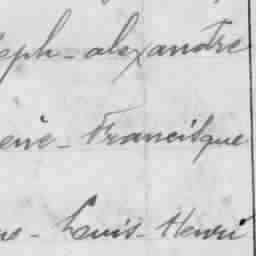 eph - alexandre
ené - Francisque
ne - Louis - Henri